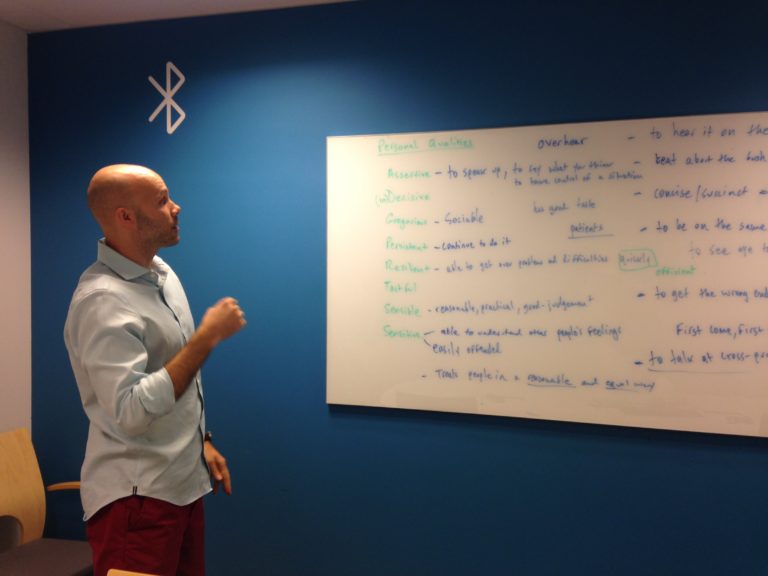 Personal Qualities
Assertive - to speak up, to say what you think
to have control of a situation
(in)Decisive
Gregarious - Sociable
has good taste
Persistent - continue to do it
Resilient - able to get over problem and difficulties
Tactful
Sensible - reasonable, practical, good-judgement
Sensitive - able to understand other people's feelings
easily offended
- Treats people in a reasonable and equal way
overhear
patients
quickly
efficient
- to hear it on the
- beat about the bush
- concise/succinct
- to be on the same
to see eye to
- to get the wrong end
First come, first
- to talk at cross-pur